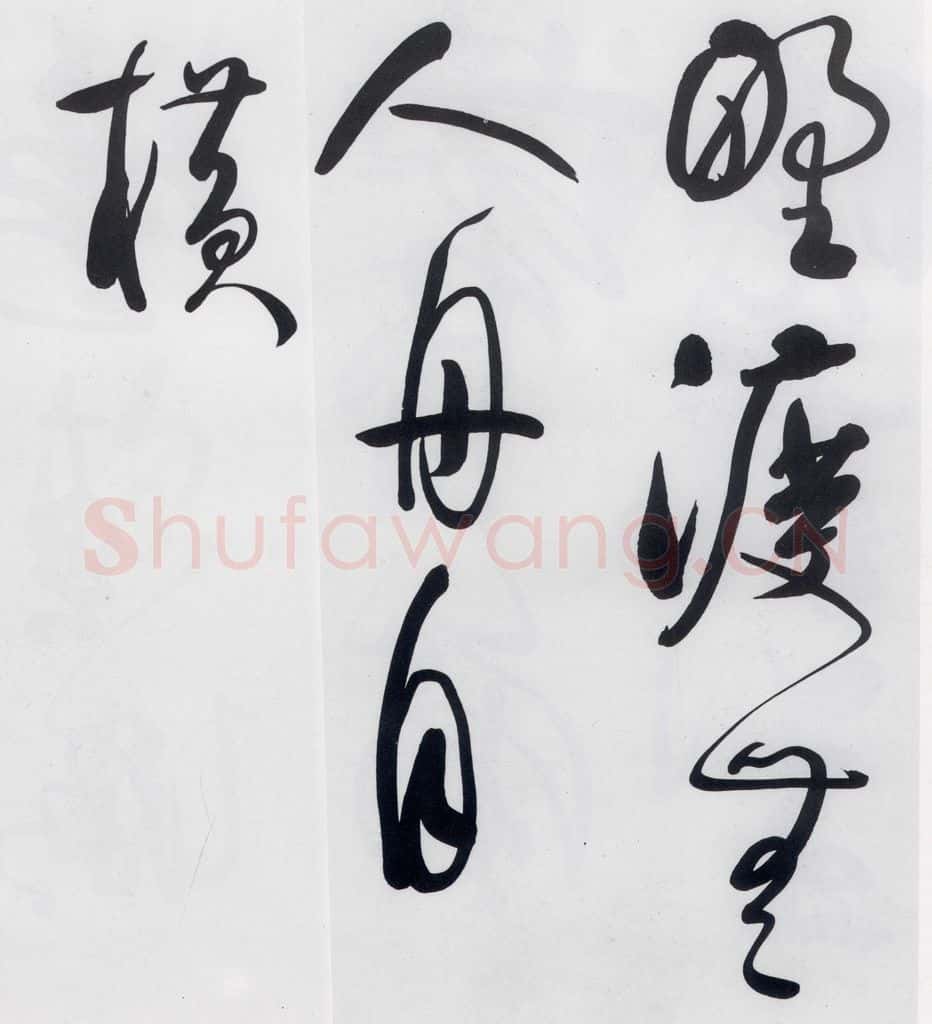 野渡無
人舟自
橫
Shufawang.CN